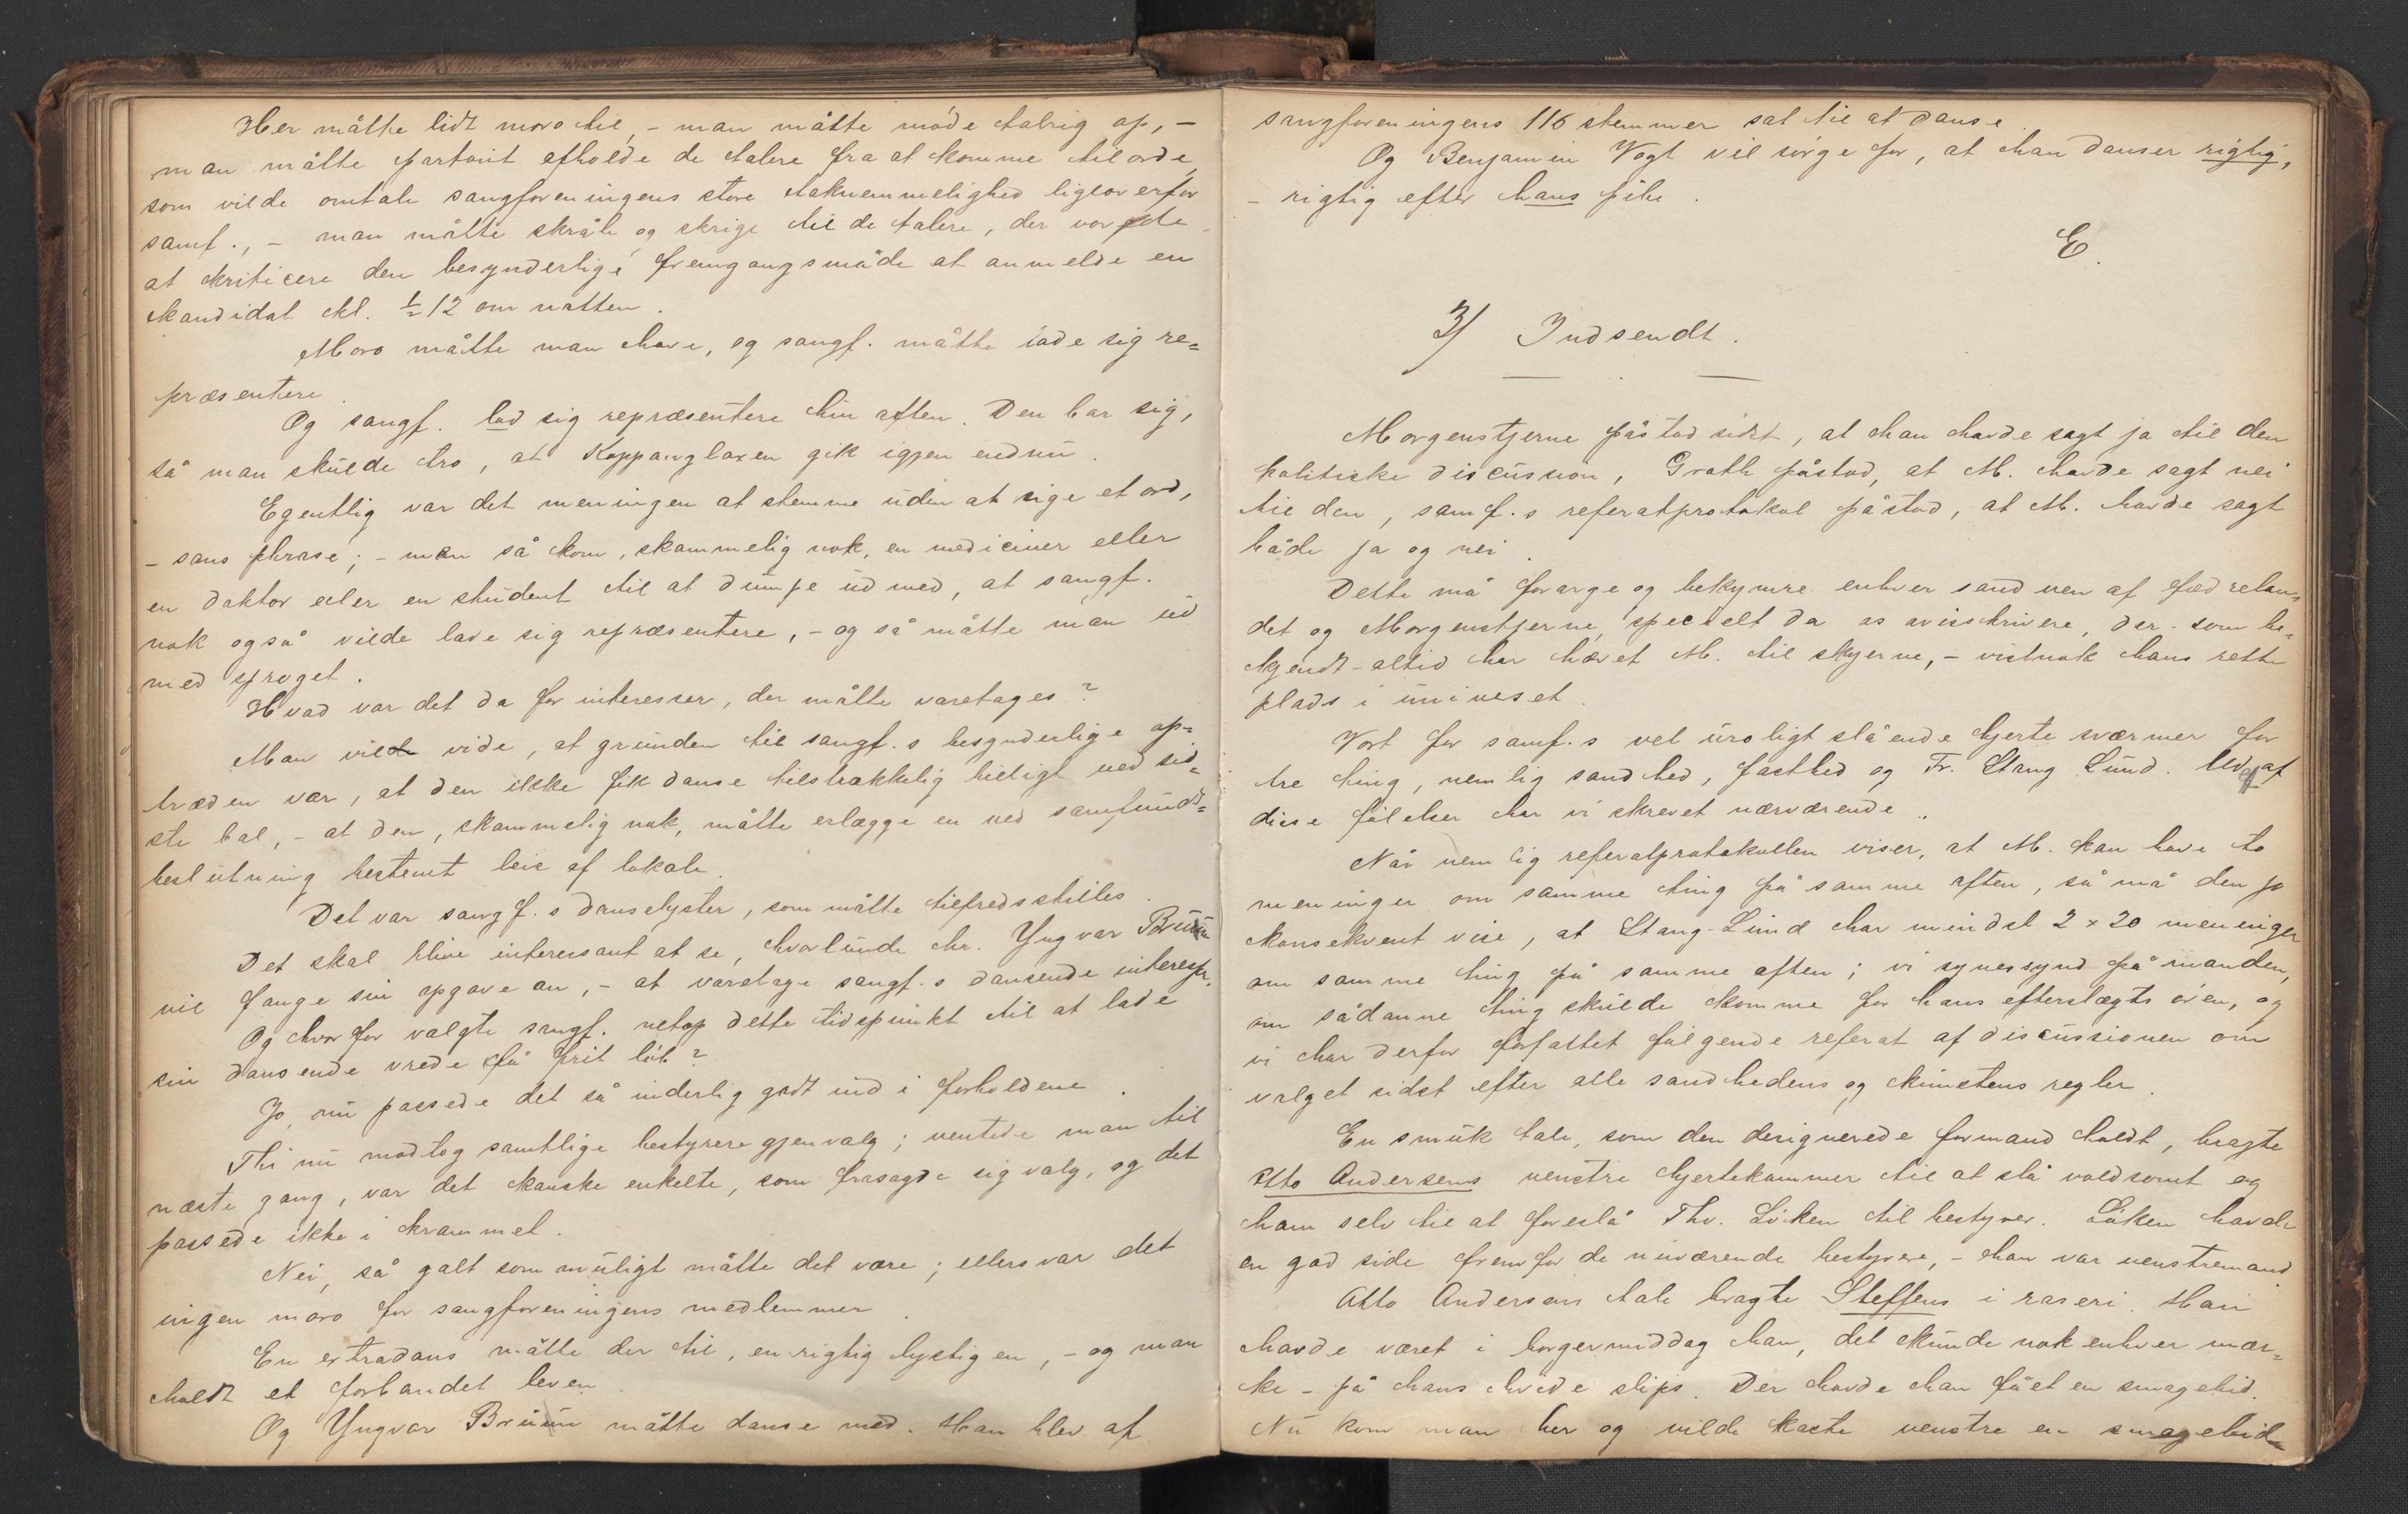 Her måtte lidt moro til, - man måtte møde talrig op, -
man måtte partout afholde de talere fra at komme til orde,
som vilde omtale sangforeningens store taknemmelighed ligeoverfor
samf., - man måtte skråle og skrige til de talere, der vovede
at kritisere den besynderlige fremgangsmåde at anmelde en
kandidat kl. ½12 om natten.
Moro måtte man have, og sangf. måtte lade sig re=
præsentere.
Og sangf. lod sig repræsentere hin aften. Den bar sig,
så man skulde tro, at Koppanglaxen gik igjen endnu.
Egentlig var det meningen at stemme uden at sige et ord,
- sans phrase; - men så kom, skammelig nok, en mediciner eller
en doktor eller en student til at dumpe ud med, at sangf.
nok også vilde lade sig repræsentere, - og så måtte man ud
med sproget.
Hvad var det da for interesser, der måtte varetages?
Man vil vide, at grunden til sangf.s besynderlige op=
træden var, at den ikke fik danse tilstrækkelig billigt ved sid=
ste bal, - at den, skammelig nok, måtte erlægge en ved samfunds=
beslutning bestemt leie af lokale.
Det var sangf.s danselyster, som måtte tilfredsstilles.
Det skal blive interessant at se, hvorlunde hr. Yngvar Bruun
vil fange sin opgave an, - at varetage sangf.s dansende interesser.
Og hvorfor valgte sangf. netop dette tidspunkt til at lade
sin dansende vrede få frit løb?
Jo, nu passede det så inderlig godt ind i forholdene.
Thi nu modtog samtlige bestyrere gjenvalg; ventede man til
næste gang, var det kanske enkelte, som frasagde sig valg, og det
passede ikke i krammet.
Nei, så galt som muligt måtte det være; ellers var det
ingen moro for sangforeningens medlemmer.
En extradans måtte der til, en rigtig lystig en, - og man
holdt et forbandet leven.
Og Yngvar Bruun måtte danse med. Han blev af
sangforeningens 116 stemmer sat til at danse.
Og Benjamin Vogt vil sørge for, at han danser rigtig,
- rigtig efter hans pibe.
E.
3/ Indsendt.
Morgenstjerne påstod sidst, at han havde sagt ja til den
politiske discussion, Groth påstod, at M. havde sagt nei
til den, samf.s referatprotokol påstod, at M. havde sagt
både ja og nei.
Dette må forarge og bekymre enhver sand ven af fædrelan=
det og Morgenstjerne, specielt da os avisskrivere, der - som be=
kjendt - altid har hævet M. til skyerne, - vistnok hans rette
plads i universet.
Vort for samf.s vel uroligt slående hjerte sværmer for
tre ting, nemlig sandhed, fasthed og Fr. Stang Lund. Ud af
disse følelser har vi skrevet nærværende.
Når nemlig referatprotokollen viser, at M. kan have to
meninger om samme ting på samme aften, så må den jo
konsekvent vise, at Stang-Lund har mindst 2 x 20 meninger
om samme ting på samme aften; vi synes synd på manden,
om sådanne ting skulde komme for hans efterslægts øren, og
vi har derfor forfattet følgende referat af discussionen om
valget sidst efter alle sandhedens og kunstens regler.
En smuk tale, som den designerede formand holdt, bragte
Otto Andersens venstre hjertekammer til at slå voldsomt og
ham selv til at foreslå Thv. Løken til bestyrer. Løken havde
en god side fremfor de nuværende bestyrere, - han var venstremand.
Otto Andersens tale bragte Steffens i raseri. Han
havde været i borgermiddag han, det kunde nok enhver mær=
ke - på hans hvide slips. Der havde han fået en smagebid.
Nu kom man her og vilde kaste venstre en smagebid